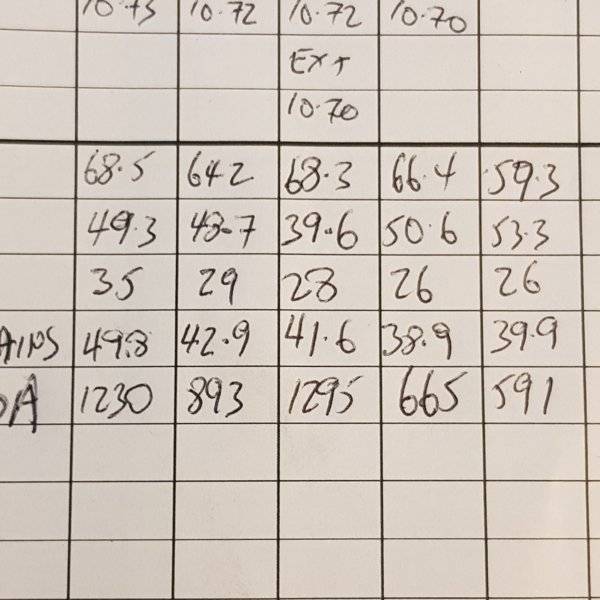 10.73 10.72 10.72 10.70
Ext
10.70
68.5 64.2 68.3 66.4 59.3
49.3 48.7 39.6 50.6 53.3
35 29 28 26 26
AINS 49.8 42.9 41.6 38.9 39.9
DA 1230 893 1295 665 591